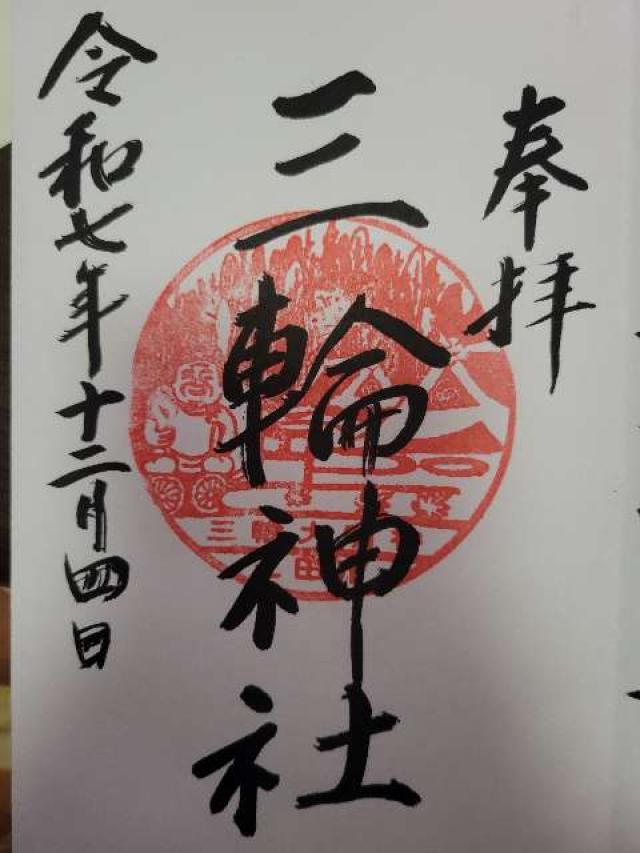 奉拝
三輪神社
令和七年十二月四日